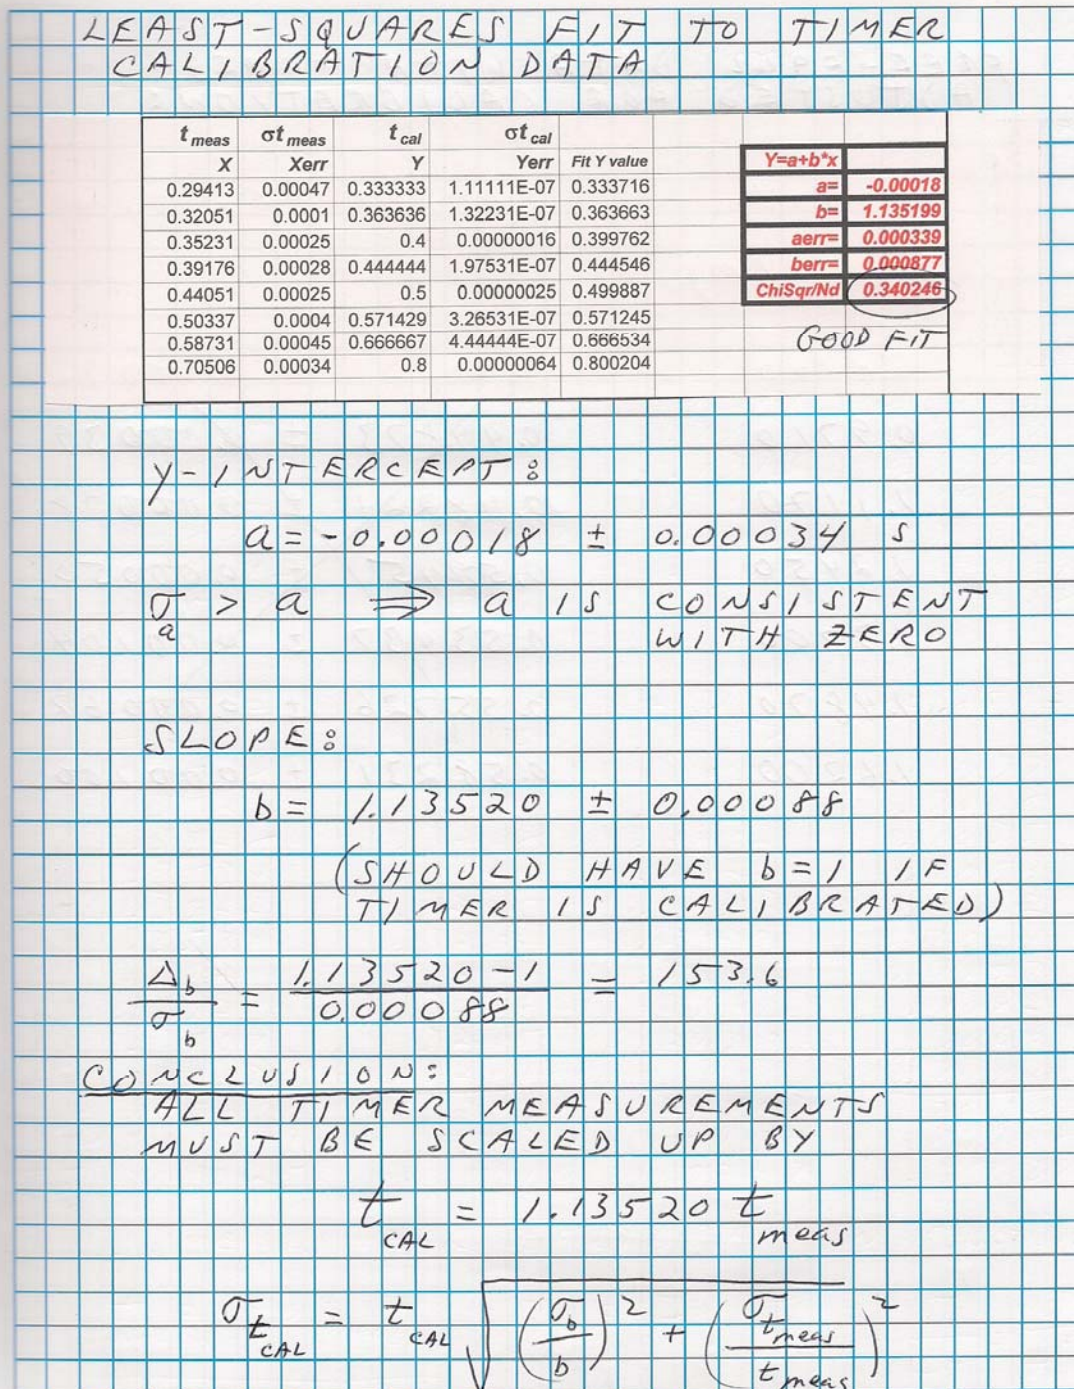 LEAST-SQUARES FIT TO TIMER
CALIBRATION DATA
t meas σt meas t cal σt cal
X Xerr Y Yerr Fit Y value
0.29413 0.00047 0.333333 1.11111E-07 0.333716
0.32051 0.0001 0.363636 1.32231E-07 0.363663
0.35231 0.00025 0.4 0.00000016 0.399762
0.39176 0.00028 0.444444 1.97531E-07 0.444546
0.44051 0.00025 0.5 0.00000025 0.499887
0.50337 0.0004 0.571429 3.26531E-07 0.571245
0.58731 0.00045 0.666667 4.44444E-07 0.666534
0.70506 0.00034 0.8 0.00000064 0.800204
Y=a+b*x
a= -0.00018
b= 1.135199
aerr= 0.000339
berr= 0.000877
ChiSqr/Nd 0.340246
GOOD FIT
Y-INTERCEPT:
a = -0.00018 ± 0.00034 s
σa > a ⇒ a IS CONSISTENT
WITH ZERO
SLOPE:
b = 1.13520 ± 0.00088
(SHOULD HAVE b=1 IF
TIMER IS CALIBRATED)
Δb/σb = (1.13520-1)/0.00088 = 153.6
CONCLUSION:
ALL TIMER MEASUREMENTS
MUST BE SCALED UP BY
t CAL = 1.13520 t meas
σ t CAL = t CAL √((σb/b)² + (σ t meas/t meas)²)